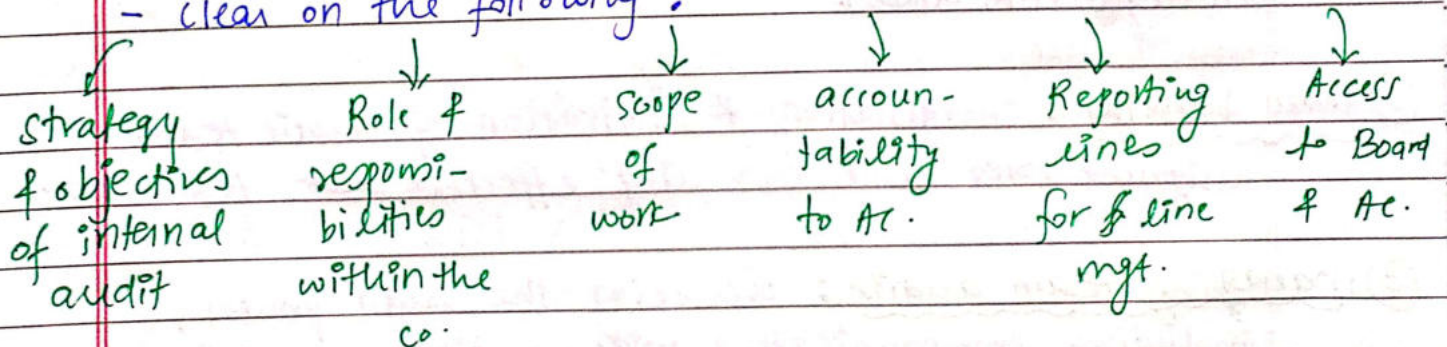 - clear on the following :
strategy
& objectives
of internal
audit
Role &
responsi-
bilities
within the
co.
scope
of
work
accoun-
tability
to AC.
Reporting
lines
for line
mgt.
Access
to Board
& AC.